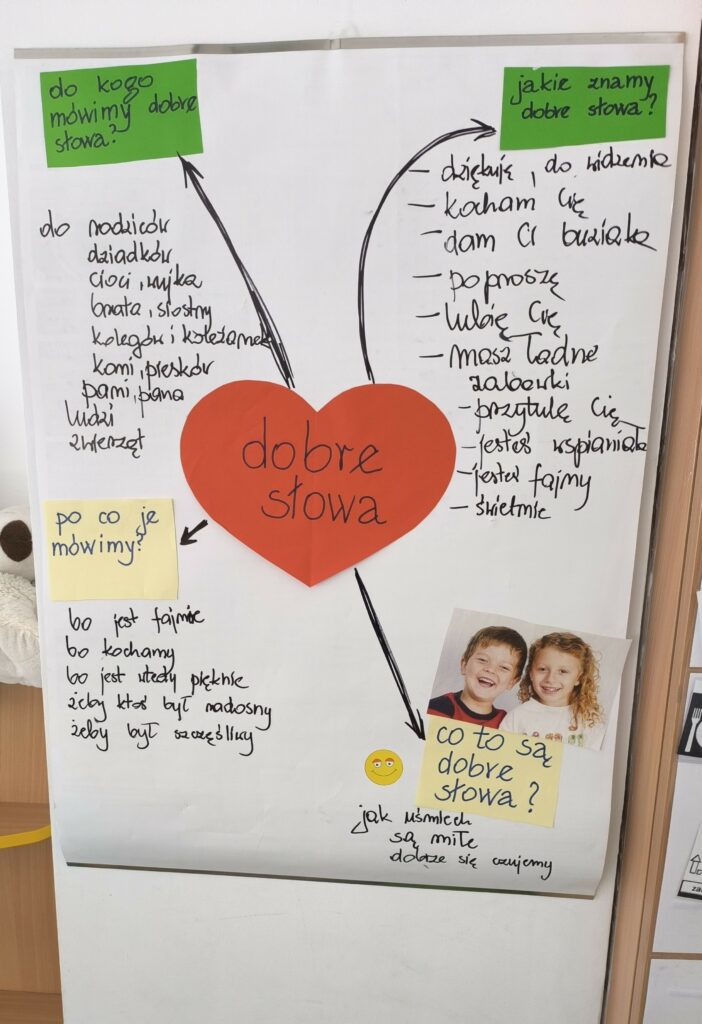 do kogo
mówimy dobre
słowa?
do rodziców
dziadków
cioci, wujka
brata, siostry
kolegów i koleżanek
koni, piesków
pani, pana
ludzi
zwierząt
jakie znamy
dobre słowa?
– dziękuję, do widzenia
– kocham Cię
– dam Ci buziaka
– poproszę
– lubię Cię
– masz ładne
zabawki
– przytulę Cię
– jesteś wspaniała
– jesteś fajny
– świetnie
dobre
słowa
po co je
mówimy?
bo jest fajnie
bo kochamy
bo jest wtedy pięknie
żeby ktoś był radosny
żeby był szczęśliwy
co to są
dobre
słowa?
jak uśmiech
są miłe
dobrze się czujemy